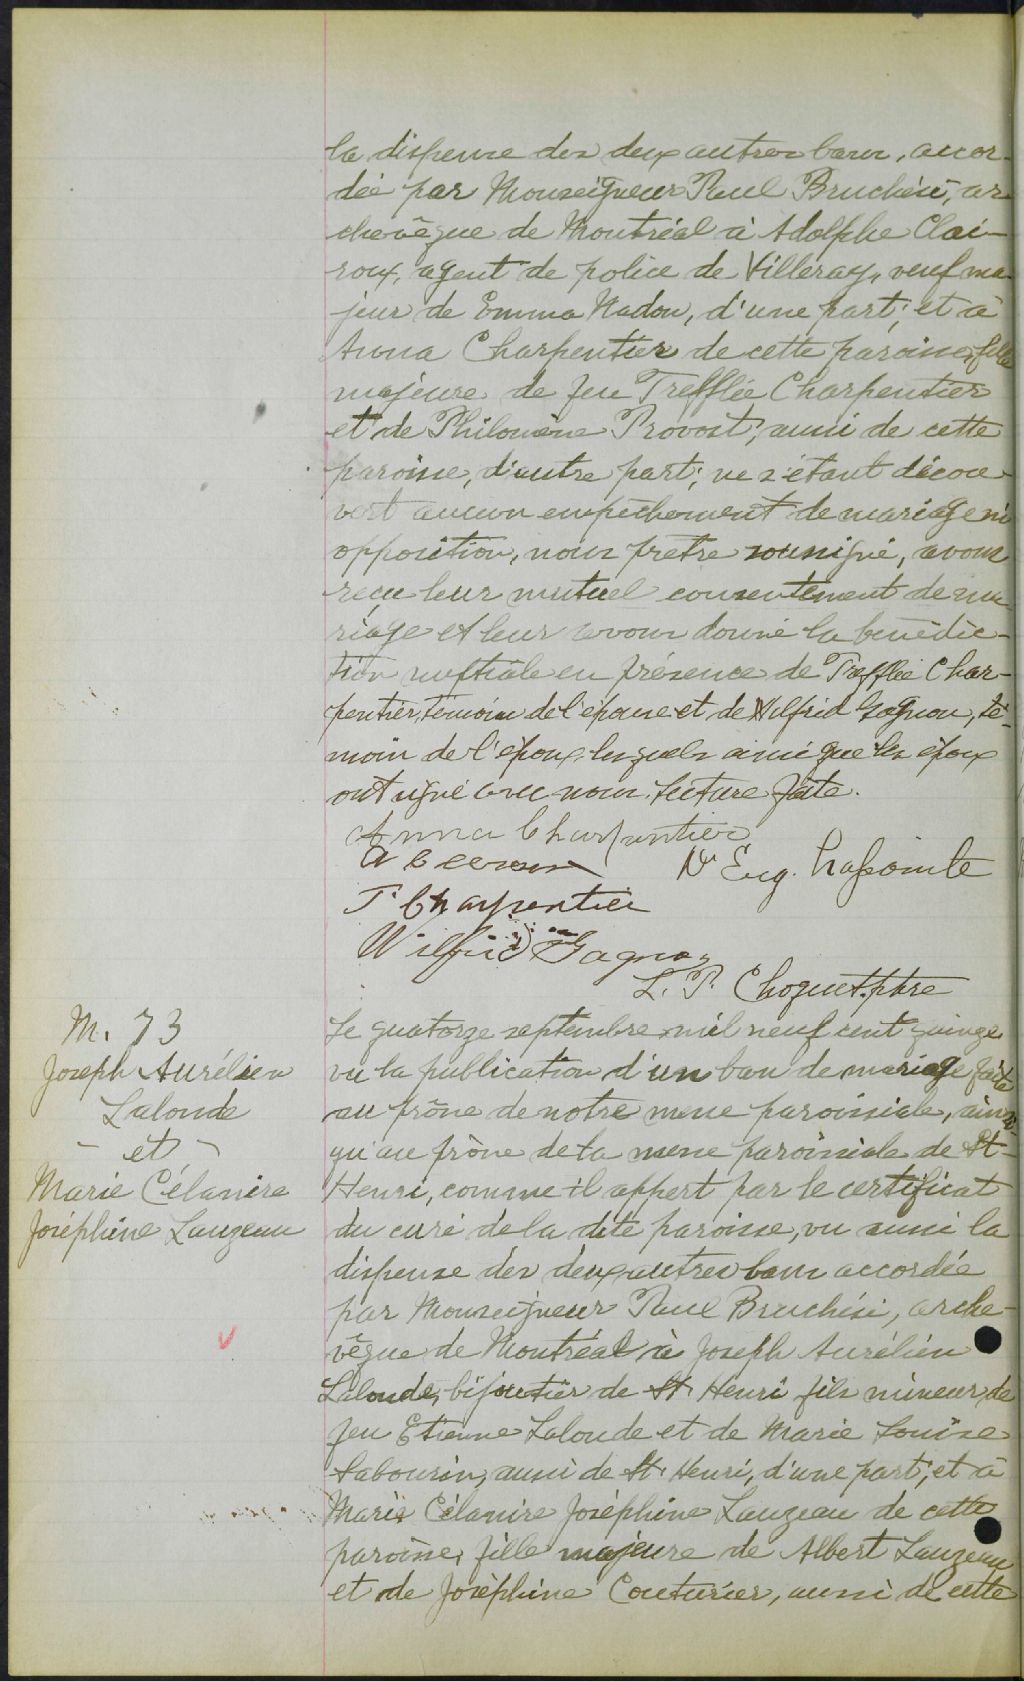 la dispense des deux autres bans, accor-
dée par Monseigneur Paul Bruchési, ar-
chevêque de Montréal à Adolphe Clai-
roux, agent de police de Villeray, veuf ma-
jeur de Emma Nadon, d'une part; et à
Anna Charpentier de cette paroisse, fille
majeure de feu Trefflée Charpentier
et de Philomène Provost, aussi de cette
paroisse, d'autre part; ne s'étant décou-
vert aucun empêchement de mariage ni
opposition, nous prêtre soussigné, avons
reçu leur mutuel consentement de ma-
riage et leur avons donné la bénédic-
tion nuptiale en présence de Trefflée Char-
pentier, témoin de l'épouse et de Wilfrid Gagnon, té-
moin de l'époux, lesquels ainsi que les époux
ont signé avec nous. Lecture faite.
Anna Charpentier
Nr Eug. Lapointe
T. Charpentier
Wilfrid Gagnon
L. P. Choquet. ptre
M. 73
Joseph Aurélien
Lalonde
- et -
Marie Célanire
Joséphine Lauzeau
Le quatorze septembre mil neuf cent quinze
vu la publication d'un ban de mariage faite
au prône de notre messe paroissiale, ainsi
qu'au prône de la messe paroissiale de St-
Henri, comme il appert par le certificat
du curé de la dite paroisse, vu aussi la
dispense des deux autres bans accordée
par Monseigneur Paul Bruchési, arche-
vêque de Montréal à Joseph Aurélien
Lalonde, bijoutier de St Henri fils mineur de
feu Etienne Lalonde et de Marie Louise
Sabourin, aussi de St. Henri, d'une part; et à
Marie Célanire Joséphine Lauzeau de cette
paroisse, fille majeure de Albert Lauzeau
et de Joséphine Couturier, aussi de cette